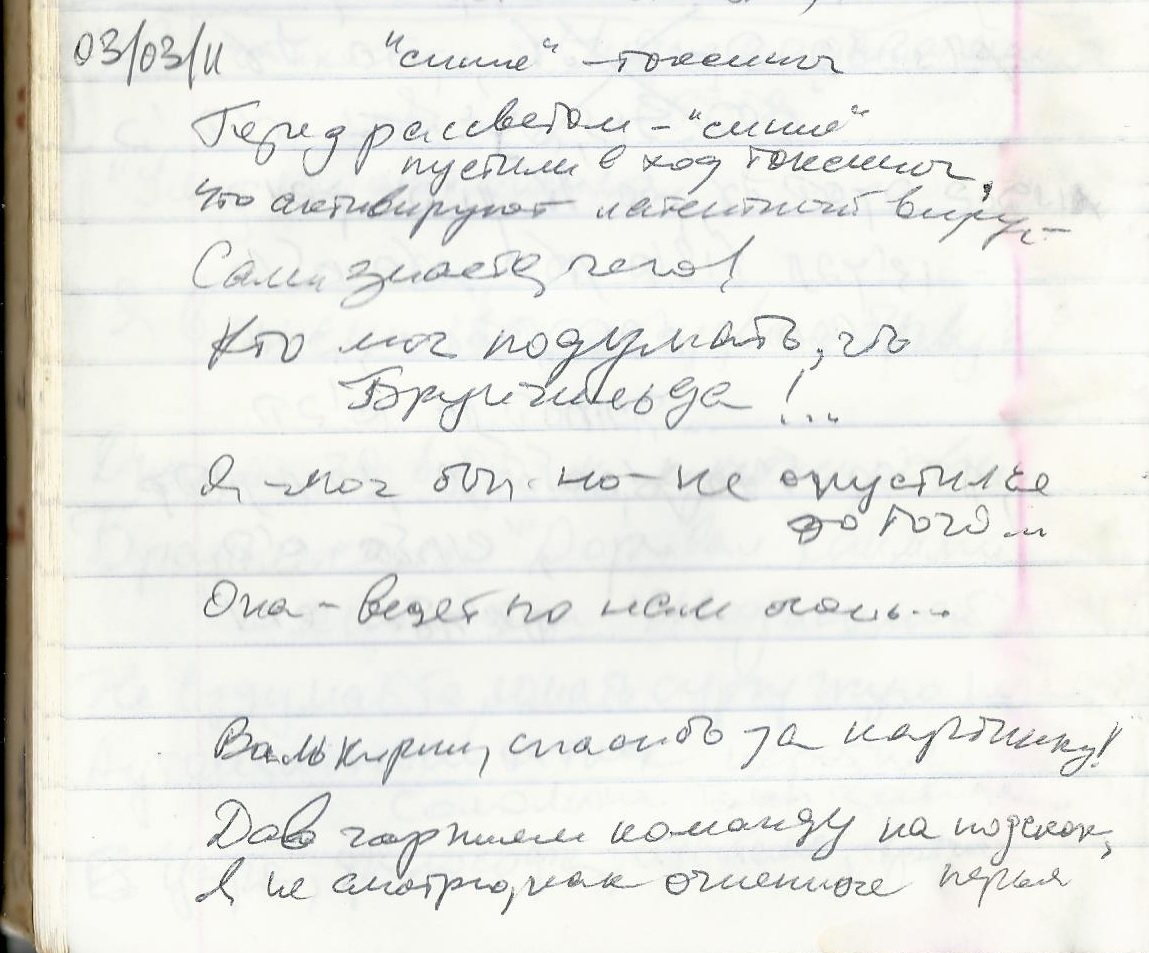 03/03/11 "синие" - токсины
Перед рассветом - "синие"
пустили в ход токсины,
что активируют латентный вирус -
Сами знаете, чего!
Кто мог подумать, что
Брунгильда!...
Я, - мог бы, но - не опустился
до того
Она - ведет по нам огонь...
Валькирии, спасибо за картинку!
Дав гарпиям команду на подскок,
Я не смотрю, как огненные перья